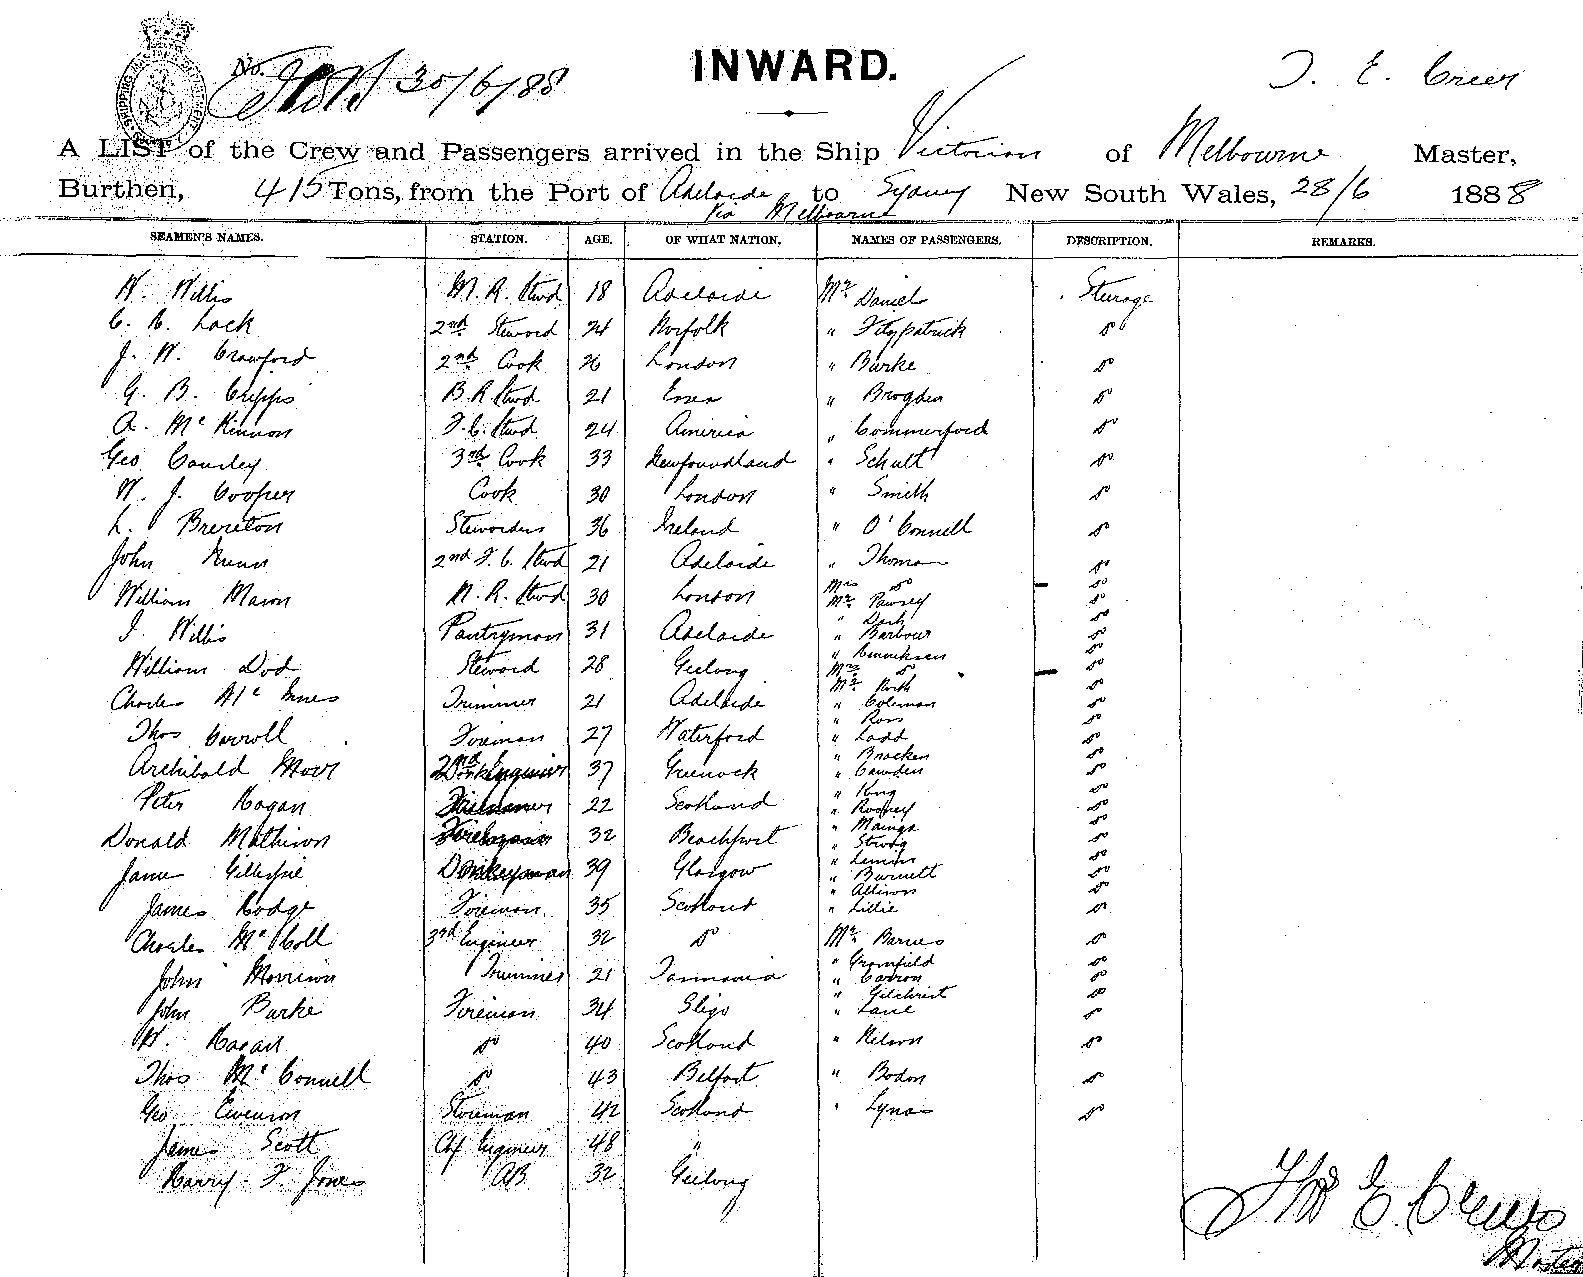 No. 30/6/88
INWARD.
T. E. Creer
A LIST of the Crew and Passengers arrived in the Ship Victorian of Melbourne Master,
Burthen, 415 Tons, from the Port of Adelaide to Sydney New South Wales, 28/6 1888
via Melbourne
SEAMEN'S NAMES. STATION. AGE. OF WHAT NATION. NAMES OF PASSENGERS. DESCRIPTION. REMARKS.
W. Willis M. R. Stwd 18 Adelaide Mr Daniels Sturage
C. A. Lock 2nd Steward 24 Norfolk " Fitzpatrick Do
J. W. Crawford 2nd Cook 26 London " Burke Do
G. B. Cripps B. R. Stwd 21 Essex " Brogden Do
A. McKinnon F. C. Stwd 24 America " Commerford Do
Geo. Cousley 3rd Cook 33 Newfoundland " Schult Do
W. J. Cooper Cook 30 London " Smith Do
L. Brereton Stewardess 36 Ireland " O'Connell Do
John Nunn 2nd F. C. Stwd 21 Adelaide " Thomas Do
Mrs Do Do
William Mason M. R. Stwd 30 London Mr Pawsey Do
" Dash Do
I. Willis Pantryman 31 Adelaide " Barbour Do
" Do
William Dod Steward 28 Geelong Mrs Do Do
Mr Roth Do
Charles McInnes Trimmer 21 Adelaide " Coleman Do
" Ross Do
Thos Carroll Fireman 27 Waterford " Ladd Do
" Bracken Do
Archibald Moir 2nd Engineer 37 Greenock " Cawden Do
" King Do
Peter Hogan 22 Scotland " Rodney Do
" Mainga Do
Donald Mathison 32 Beachport " Do
" Lemin Do
James Gillespie Donkeyman 39 Glasgow " Burnett Do
" Allison Do
James Hodge Fireman 35 Scotland " Lillie Do
Charles McColl 3rd Engineer 32 Do Mr Barnes Do
" Gromfield Do
John Morrison Trimmer 21 Tasmania " Carron Do
" Gilchrist Do
John Burke Fireman 34 Sligo " Lane Do
W. Hagan Do 40 Scotland " Nelson Do
Thos McConnell Do 43 Belfast " Bodon Do
Geo Evenson Storeman 42 Scotland " Lynas Do
James Scott Chf Engineer 48 "
Harry F. Jones AB 32 Geelong
Thos E. Creer
Master